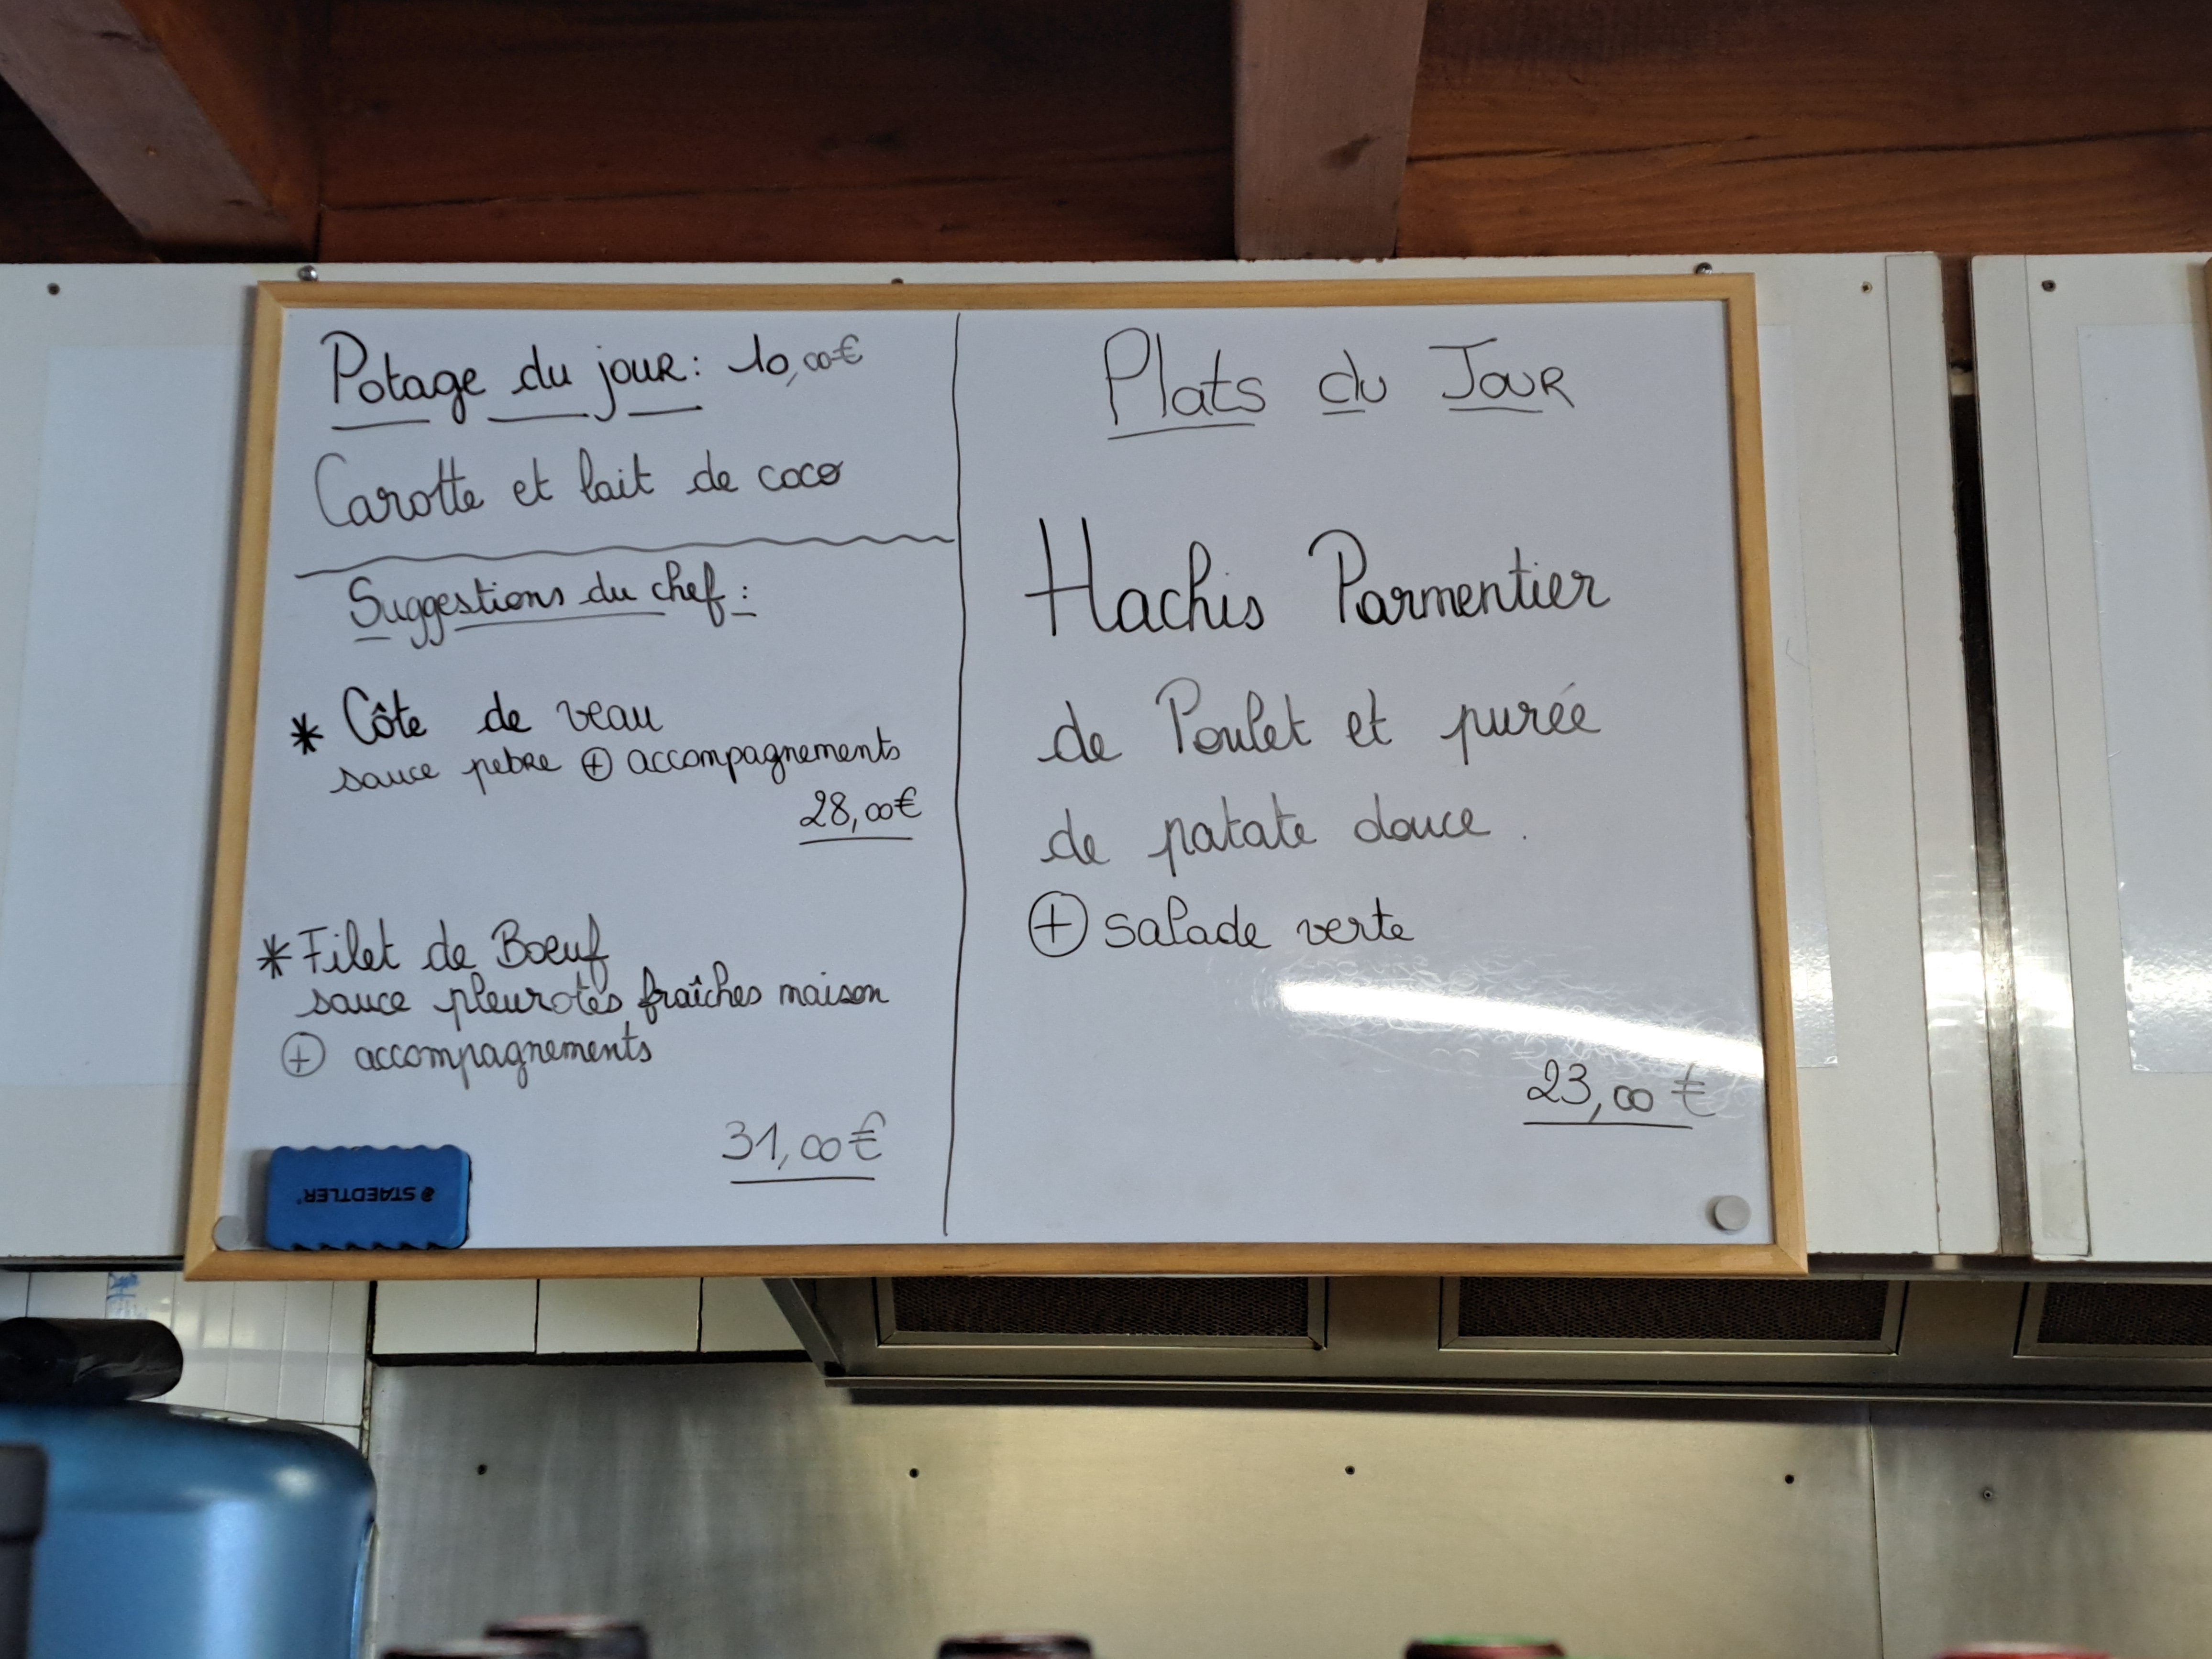 Potage du jour : 10,00€
Carotte et lait de coco
Suggestions du chef :
* Côte de veau
sauce pebre ⊕ accompagnements
28,00€
* Filet de Boeuf
sauce pleurotes fraîches maison
⊕ accompagnements
31,00€
STAEDTLER
Plats du Jour
Hachis Parmentier
de Poulet et purée
de patate douce.
⊕ salade verte
23,00 €